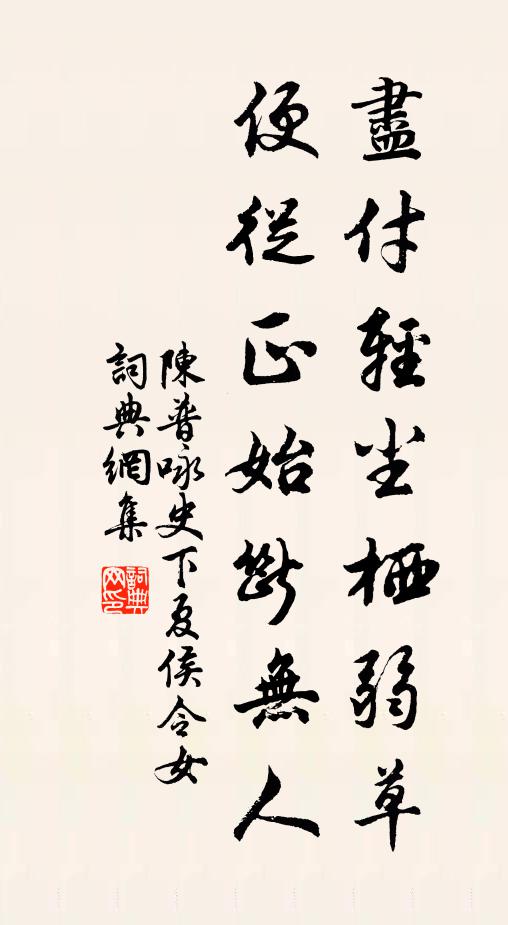 盡付輕塵栖弱草
便從正始斷無人
陳普咏史下夏侯令女
詞典網集
詞典
网印